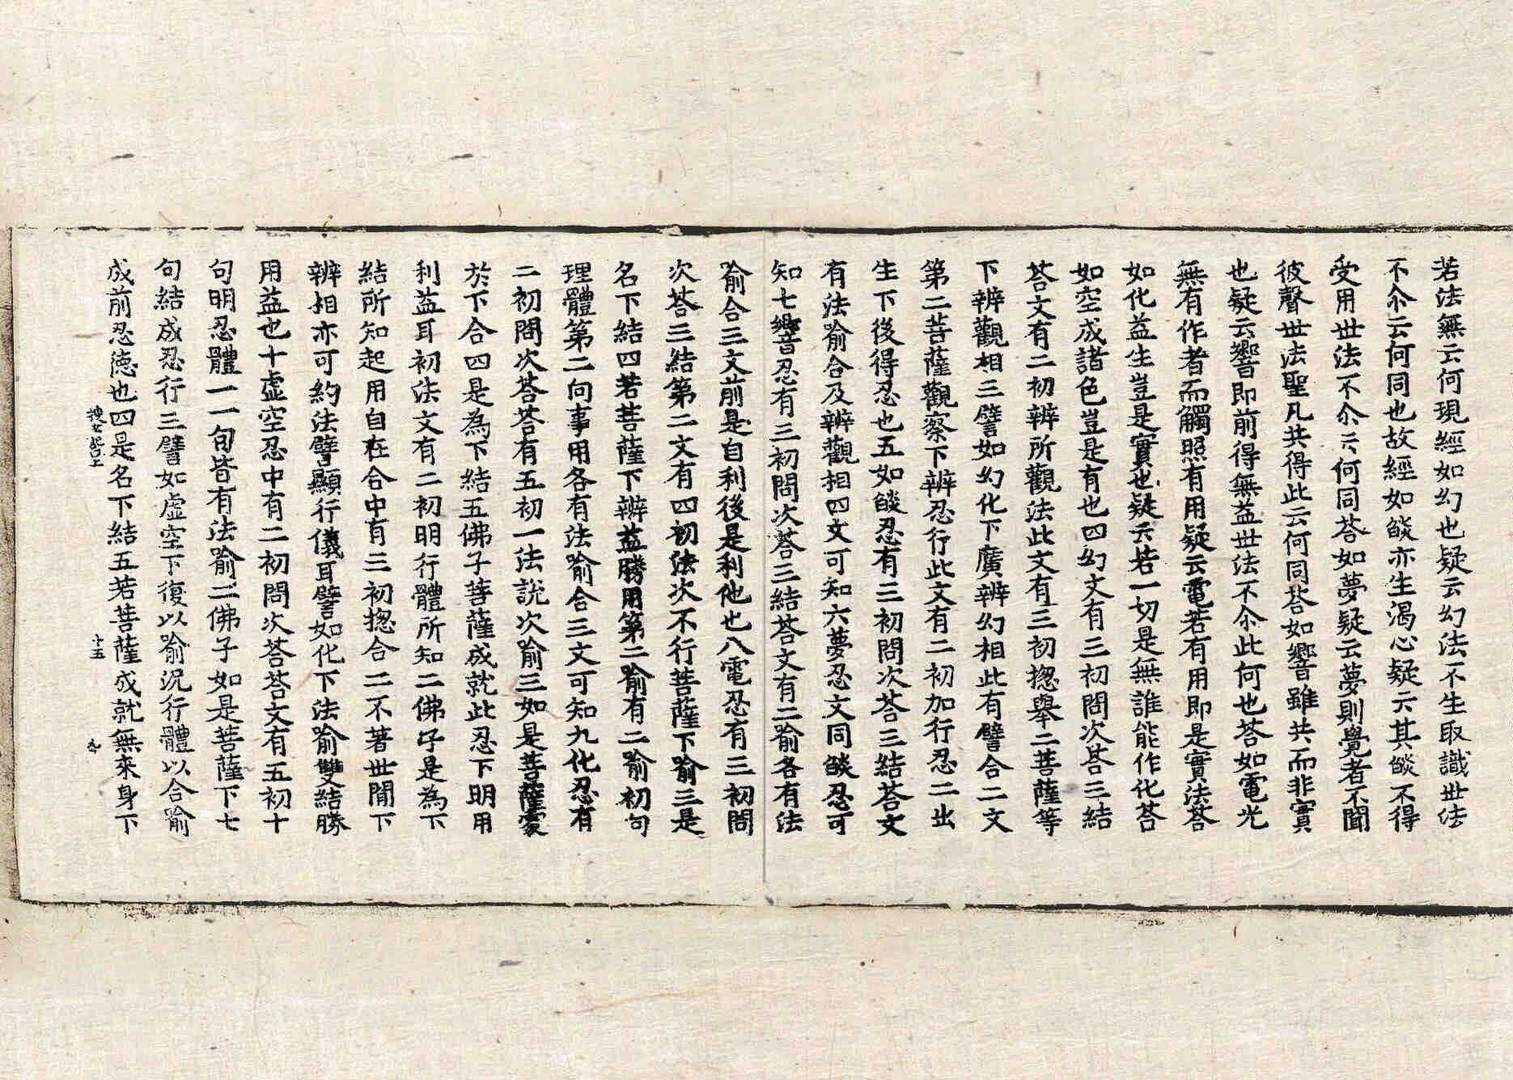 若法無云何現經如幻也疑云幻法不生取識世法
不尒云何同也故經如燄亦生渴心疑云其燄不得
受用世法不尒云何同荅如夢疑云夢則覺者不聞
彼聲世法聖凡共得此云何同荅如響雖共而非實
也疑云響即前得無益世法不尒此何也荅如電光
無有作者而觸照有用疑云電若有用即是實法荅
如化益生豈是實也疑云若一切是無誰能作化荅
如空成諸色豈是有也四幻文有三初問次荅三結
荅文有二初辨所觀法此文有三初揔舉二菩薩等
下辨觀相三譬如幻化下廣辨幻相此有譬合二文
第二菩薩觀察下辨忍行此文有二初加行忍二出
生下後得忍也五如燄忍有三初問次荅三結荅文
有法喻合及辨觀相四文可知六夢忍文同燄忍可
知七響忍有三初問次荅三結荅文有二喻各有法
喻合三文前是自利後是利他也八電忍有三初問
次荅三結第二文有四初法次不行菩薩下喻三是
名下結四若菩薩下辨益勝用第二喻有二喻初句
理體第二向事用各有法喻合三文可知九化忍有
二初問次荅荅有五初一法說次喻三如是菩薩蒙
於下合四是為下結五佛子菩薩成就此忍下明用
利益耳初法文有二初明行體所知二佛子是為下
結所知起用自在合中有三初揔合二不著世閒下
辨相亦可約法譬顯行儀耳譬如化下法喻雙結勝
用益也十虛空忍中有二初問次荅荅文有五初十
句明忍體一一句皆有法喻二佛子如是菩薩下七
句結成忍行三譬如虛空下復以喻況行體以合喻
成前忍德也四是名下結五若菩薩成就無來身下
十五